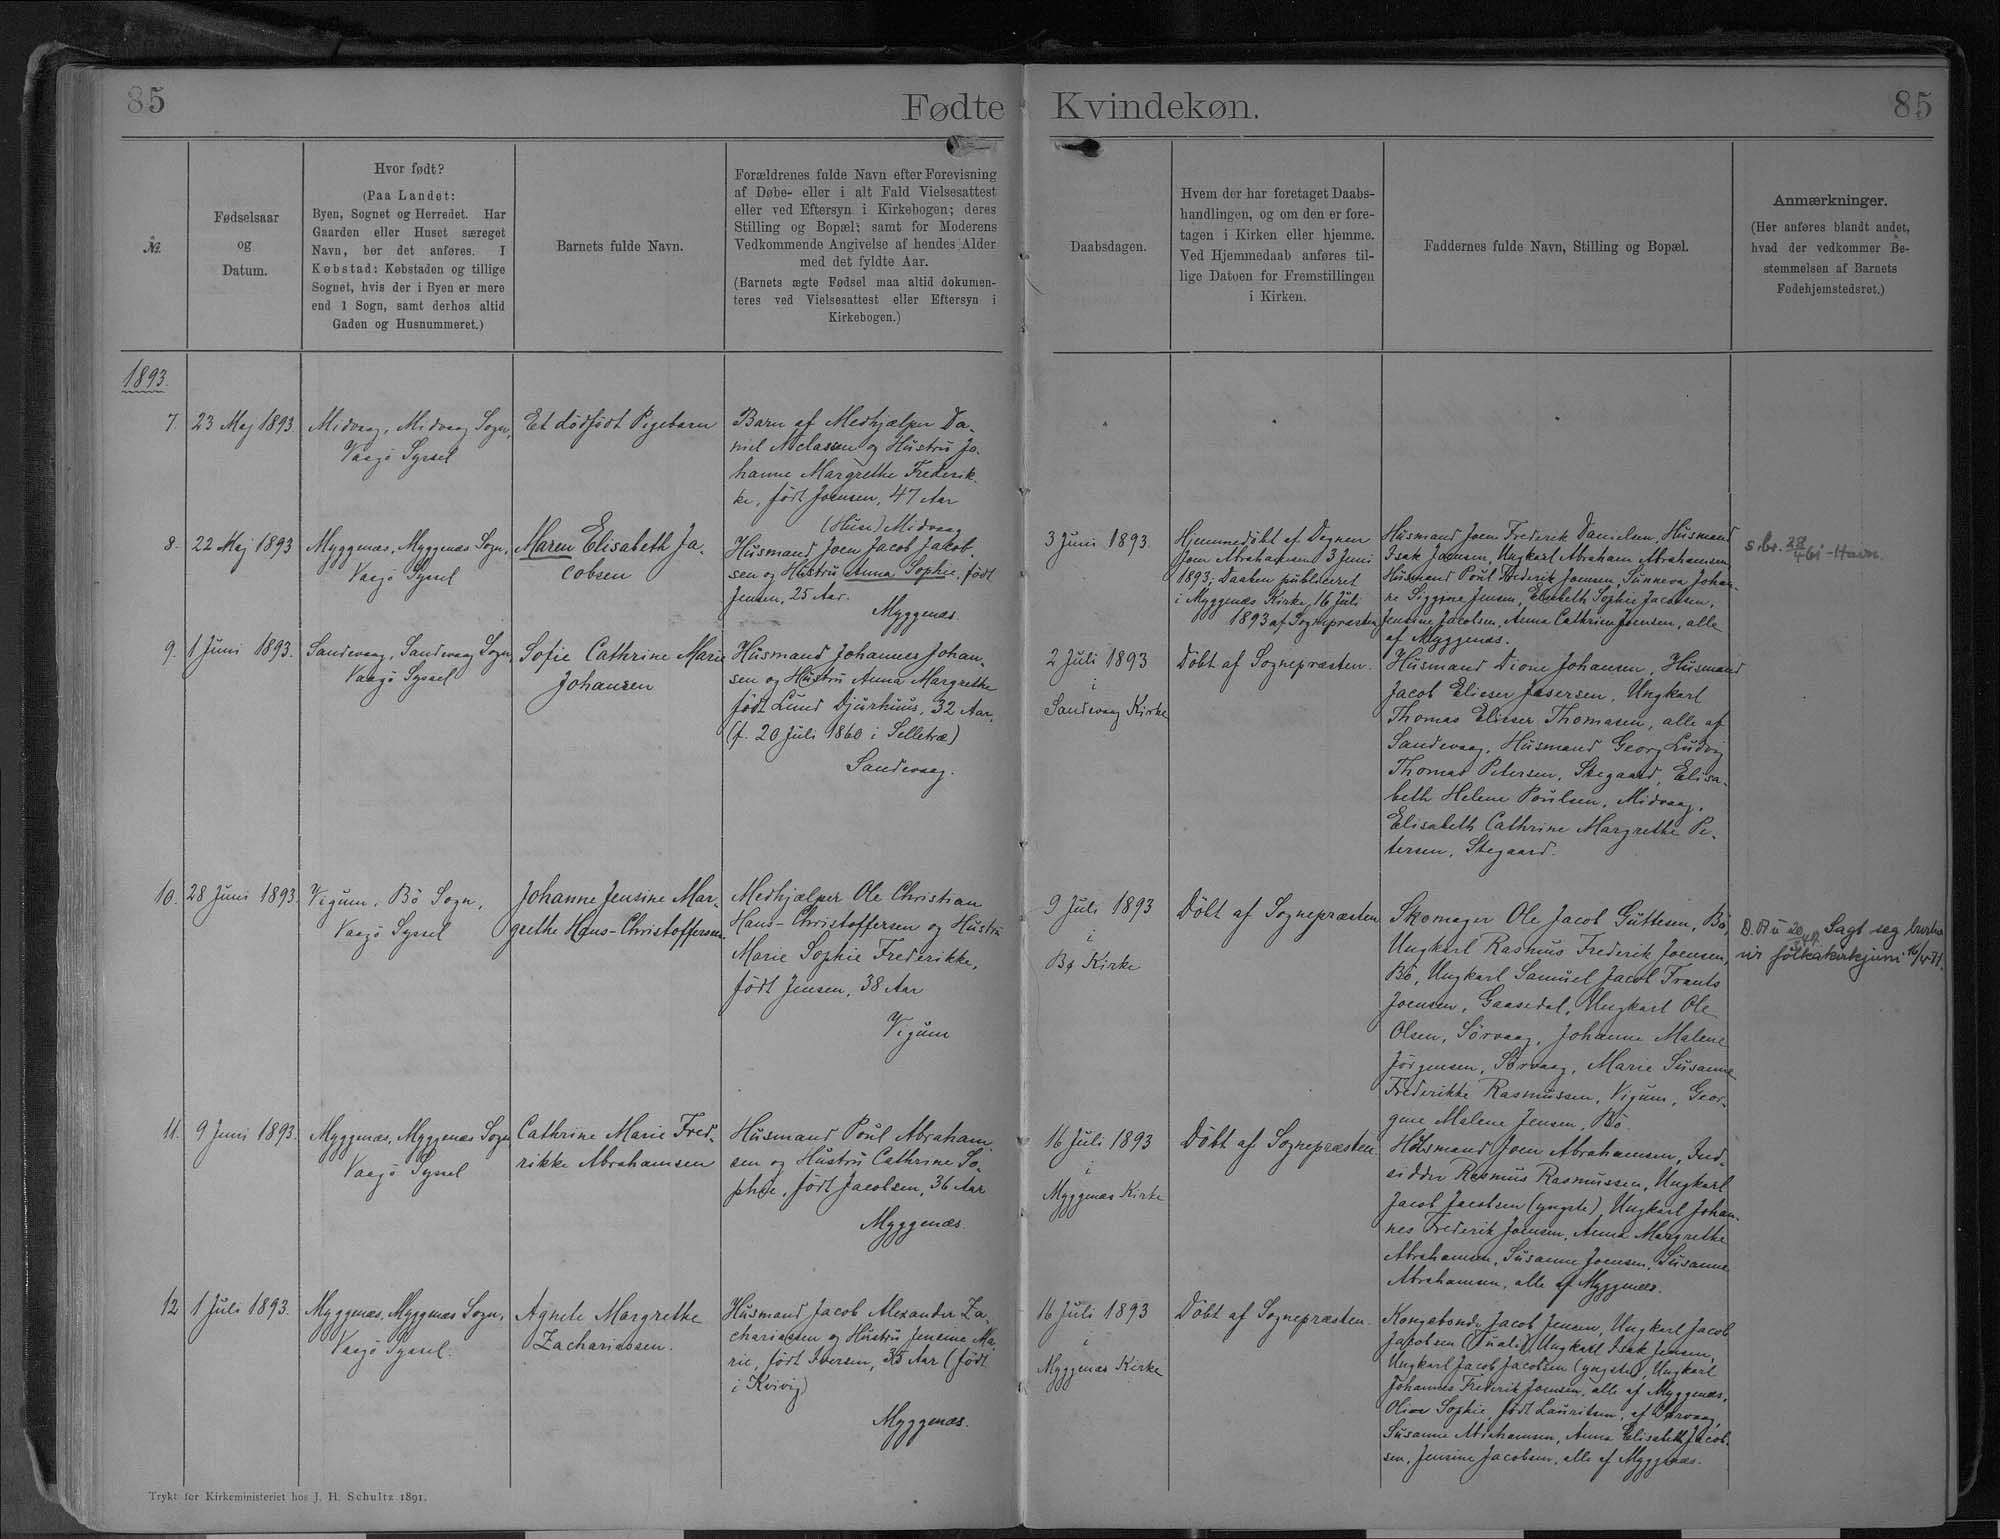 85
Fødte Kvindekøn.
85
№.
Fødselsaar
og
Datum.
Hvor født?
(Paa Landet:
Byen, Sognet og Herredet. Har
Gaarden eller Huset særeget
Navn, bør det anføres. I
Købstad: Købstaden og tillige
Sognet, hvis der i Byen er mere
end 1 Sogn, samt derhos altid
Gaden og Husnummeret.)
Barnets fulde Navn.
Forældrenes fulde Navn efter Forevisning
af Døbe- eller i alt Fald Vielsesattest
eller ved Eftersyn i Kirkebogen; deres
Stilling og Bopæl; samt for Moderens
Vedkommende Angivelse af hendes Alder
med det fyldte Aar.
(Barnets ægte Fødsel maa altid dokumen-
teres ved Vielsesattest eller Eftersyn i
Kirkebogen.)
Daabsdagen.
Hvem der har foretaget Daabs-
handlingen, og om den er fore-
tagen i Kirken eller hjemme.
Ved Hjemmedaab anføres til-
lige Datoen for Fremstillingen
i Kirken.
Faddernes fulde Navn, Stilling og Bopæl.
Anmærkninger.
(Her anføres blandt andet,
hvad der vedkommer Be-
stemmelsen af Barnets
Fødehjemstedsret.)
1893.
7.
23 Maj 1893.
Midvaag, Midvaag Sogn,
Vaagö Syssel
Et dödfödt Pigebarn
Barn af Medhjælper Da-
niel Niclassen og Hustru Jo-
hanne Margrethe Frederik-
ke, födt Joensen, 47 Aar
(Huse) Midvaag
8.
22 Maj 1893
Myggenæs, Myggenæs Sogn,
Vaagö Syssel
Maren Elisabeth Ja-
cobsen
Husmand Joen Jacob Jakob-
sen og Hustru Anna Sophie, födt
Jensen, 25 Aar.
Myggenæs.
3 Juni 1893.
Hjemmedöbt af Degnen
Joen Abrahamsen 3 Juni
1893; Daaben publiceret
i Myggenæs Kirke, 16 Juli
1893 af Sognepræsten
Husmand Joen Frederik Danielsen, Husmand
Isak Joensen, Ungkarl Abraham Abrahamsen
Husmand Poul Frederik Joensen, Sunneva Johan-
ne Jensen, Elisabeth Sophie Jacobsen,
Jensine Jacobsen, Anna Cathrine Joensen, alle
af Myggenæs.
s. br. 28/46 i Havn.
9.
1 Juni 1893.
Sandevaag, Sandevaag Sogn,
Vaagö Syssel
Sofie Cathrine Marie
Johansen
Husmand Johannes Johan-
sen og Hustru Anna Margrethe
födt Lund Djurhuus, 32 Aar,
(f. 20 Juli 1860 i Selletræ)
Sandevaag.
2 Juli 1893
i
Sandevaag Kirke
Döbt af Sognepræsten.
Husmand Dione Johansen, Husmand
Jacob Elieser Jesersen, Ungkarl
Thomas Elieser Thomasen, alle af
Sandevaag, Husmand Georg Ludvig
Thomas Petersen, Stegaard, Elisa-
beth Helene Poulsen, Midvaag,
Elisabeth Cathrine Margrethe Pe-
tersen, Stegaard.
10.
28 Juni 1893.
Vigum, Bö Sogn,
Vaagö Syssel
Johanne Jensine Mar-
grethe Hans-Christoffersen
Medhjælper Ole Christian
Hans-Christoffersen og Hustru
Marie Sophie Frederikke,
födt Jensen, 38 Aar
Vigum
9 Juli 1893
i
Bø Kirke
Döbt af Sognepræsten
Skomager Ole Jacob Guttesen, Bö,
Ungkarl Rasmus Frederik Joensen,
Bö, Ungkarl Samuel Jacob Frants
Joensen, Gaasedal, Ungkarl Ole
Olsen, Sörvaag, Johanne Malene
Jörgensen, Sörvaag, Marie Susanne
Frederikke Rasmussen, Vigum, Geor-
gine Malene Jensen, Bö.
Sagt seg burtur
úr fólkakirkjuni
11.
9 Juni 1893.
Myggenæs, Myggenæs Sogn
Vaagö Syssel
Cathrine Marie Fred-
rikke Abrahamsen
Husmand Poul Abraham
sen og Hustru Cathrine So-
phie, födt Jacobsen, 36 Aar
Myggenæs.
16 Juli 1893
i
Myggenæs Kirke
Döbt af Sognepræsten
Husmand Joen Abrahamsen, Ind-
sidder Rasmus Rasmussen, Ungkarl
Jacob Jacobsen (yngste), Ungkarl Johan-
nes Frederik Joensen, Anna Margrethe
Abrahamsen, Susanne Joensen, Susanne
Abrahamsen, alle af Myggenæs.
12
1 Juli 1893.
Myggenæs, Myggenæs Sogn,
Vaagö Syssel.
Agnete Margrethe
Zachariassen.
Husmand Jacob Alexander Za-
chariassen og Hustru Jensine Ma-
rie, födt Iversen, 35 Aar (födt
i Kvivig)
Myggenæs.
16 Juli 1893
i
Myggenæs Kirke
Döbt af Sognepræsten.
Kongsbonde Jacob Jensen, Ungkarl Jacob
Jacobsen Ungkarl Isak Jensen,
Ungkarl Jacob Jacobsen (yngste), Ungkarl
Johannes Frederik Joensen, alle af Myggenæs,
Olive Sophie, födt Lauritsen, af Sörvaag,
Susanne Abrahamsen, Anna Elisabeth Jacob-
sen, Jensine Jacobsen, alle af Myggenæs.
Trykt for Kirkeministeriet hos J. H. Schultz 1891.